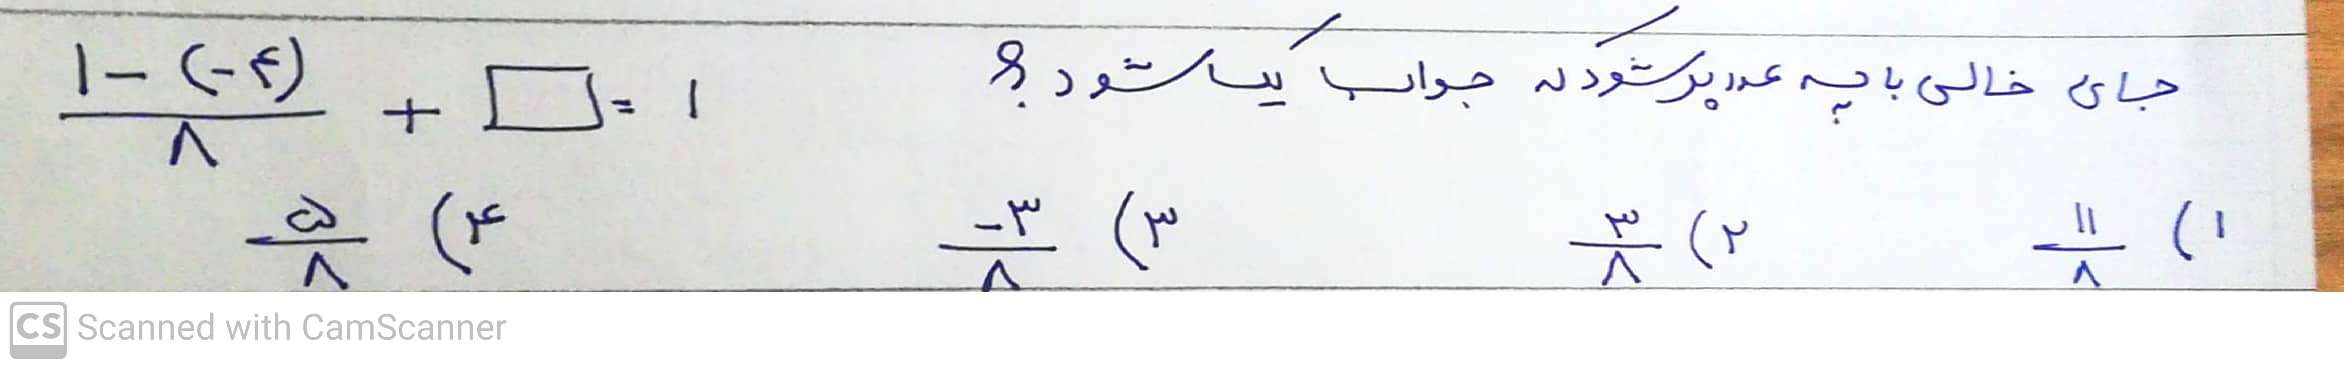 جای خالی با چه عدد پر شود که جواب یک شود؟ (۱-(-۴))/۸ + □ = ۱
۱) ۱۱/۸ ۲) ۳/۸ ۳) -۳/۸ ۴) ۵/۸
CS Scanned with CamScanner